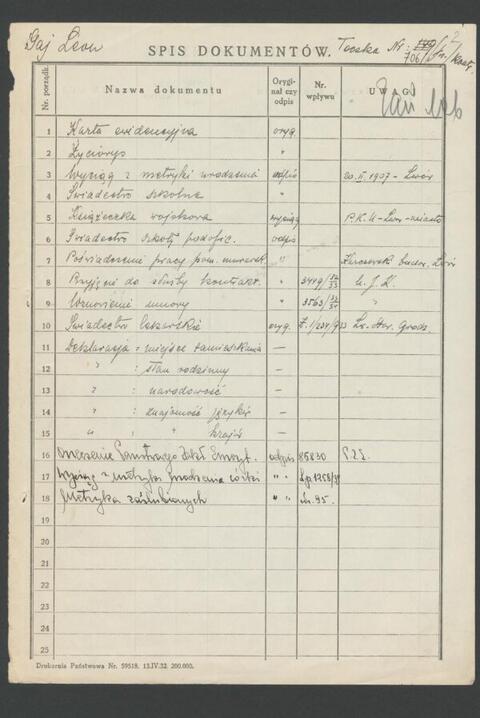 Gaj Leon
SPIS DOKUMENTÓW. Teczka Nr:
706
Nr. porządk. Nazwa dokumentu Orygi- nał czy odpis Nr. wpływu UWAGI
1 Karta ewidencyjna oryg.
2 Życiorys "
3 Wyciąg z metryki urodzenia odpis 20.II.1907 - Lwów
4 Świadectwo szkolne "
5 Książeczka wojskowa wyciąg P.K.U - Lwów - miasto
6 Świadectwo szkoły podofic. odpis
7 Poświadczenie pracy pom. murarsk. " budow. Lwów
8 Przyjęcie do służby kontrakt. " 3419/32/33
9 Wznowienie umowy " 3563/33/34 "
10 Świadectwo lekarskie oryg. Grodz.
11 Deklaracja: miejsce zamieszkania —
12 " : stan rodzinny —
13 " : narodowość —
14 " : znajomość języków —
15 " " krajów —
16 Orzeczenie Państwowego Zakł. Emeryt. odpis 85830
17 Wyciąg z metryki urodzenia córki " "
18 Metryka zaślubionych " "
19
20
21
22
23
24
25
Drukarnia Państwowa Nr. 59518. 13.IV.32. 200.000.